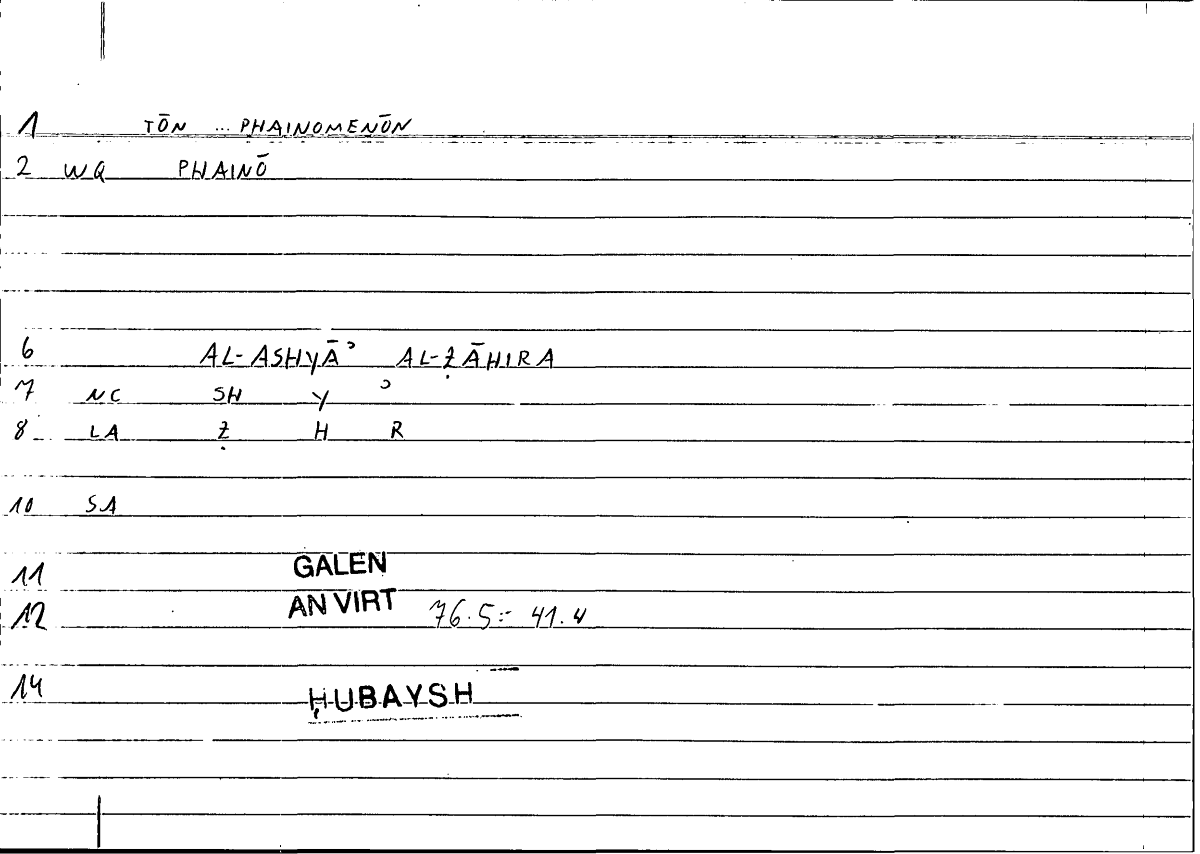 1 TŌN ... PHAINOMENŌN
2 WQ PHAINŌ
6 AL-ASHYĀʾ AL-ẒĀHIRA
7 NC SH Y ʾ
8 LA Ẓ H R
10 SA
11 GALEN
12 AN VIRT 76.5 = 41.4
14 ḤUBAYSH